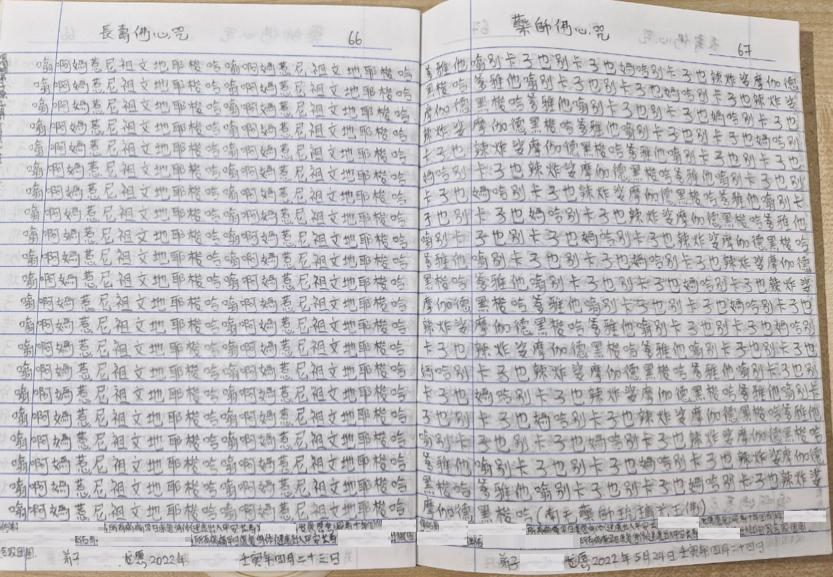 長壽佛心咒 66
嗡啊媽惹尼祖文地耶梭哈嗡啊媽惹尼祖文地耶梭哈
嗡啊媽惹尼祖文地耶梭哈嗡啊媽惹尼祖文地耶梭哈
嗡啊媽惹尼祖文地耶梭哈嗡啊媽惹尼祖文地耶梭哈
嗡啊媽惹尼祖文地耶梭哈嗡啊媽惹尼祖文地耶梭哈
嗡啊媽惹尼祖文地耶梭哈嗡啊媽惹尼祖文地耶梭哈
嗡啊媽惹尼祖文地耶梭哈嗡啊媽惹尼祖文地耶梭哈
嗡啊媽惹尼祖文地耶梭哈嗡啊媽惹尼祖文地耶梭哈
嗡啊媽惹尼祖文地耶梭哈嗡啊媽惹尼祖文地耶梭哈
嗡啊媽惹尼祖文地耶梭哈嗡啊媽惹尼祖文地耶梭哈
嗡啊媽惹尼祖文地耶梭哈嗡啊媽惹尼祖文地耶梭哈
嗡啊媽惹尼祖文地耶梭哈嗡啊媽惹尼祖文地耶梭哈
嗡啊媽惹尼祖文地耶梭哈嗡啊媽惹尼祖文地耶梭哈
嗡啊媽惹尼祖文地耶梭哈嗡啊媽惹尼祖文地耶梭哈
嗡啊媽惹尼祖文地耶梭哈嗡啊媽惹尼祖文地耶梭哈
嗡啊媽惹尼祖文地耶梭哈嗡啊媽惹尼祖文地耶梭哈
嗡啊媽惹尼祖文地耶梭哈嗡啊媽惹尼祖文地耶梭哈
嗡啊媽惹尼祖文地耶梭哈嗡啊媽惹尼祖文地耶梭哈
嗡啊媽惹尼祖文地耶梭哈嗡啊媽惹尼祖文地耶梭哈
嗡啊媽惹尼祖文地耶梭哈嗡啊媽惹尼祖文地耶梭哈
嗡啊媽惹尼祖文地耶梭哈嗡啊媽惹尼祖文地耶梭哈
嗡啊媽惹尼祖文地耶梭哈嗡啊媽惹尼祖文地耶梭哈
弟子 2022年 壬寅年四月二十三日
藥師佛心咒 67
爹雅他嗡別卡子也別卡子也媽哈別卡子也辣炸娑摩伽德
黑梭哈爹雅他嗡別卡子也別卡子也媽哈別卡子也辣炸娑
摩伽德黑梭哈爹雅他嗡別卡子也別卡子也媽哈別卡子也
辣炸娑摩伽德黑梭哈爹雅他嗡別卡子也別卡子也媽哈別
卡子也辣炸娑摩伽德黑梭哈爹雅他嗡別卡子也別卡子也
媽哈別卡子也辣炸娑摩伽德黑梭哈爹雅他嗡別卡子也別
卡子也媽哈別卡子也辣炸娑摩伽德黑梭哈爹雅他嗡別卡
子也別卡子也媽哈別卡子也辣炸娑摩伽德黑梭哈爹雅他
嗡別卡子也別卡子也媽哈別卡子也辣炸娑摩伽德黑梭哈
爹雅他嗡別卡子也別卡子也媽哈別卡子也辣炸娑摩伽德
黑梭哈爹雅他嗡別卡子也別卡子也媽哈別卡子也辣炸娑
摩伽德黑梭哈爹雅他嗡別卡子也別卡子也媽哈別卡子也
辣炸娑摩伽德黑梭哈爹雅他嗡別卡子也別卡子也媽哈別
卡子也辣炸娑摩伽德黑梭哈爹雅他嗡別卡子也別卡子也
媽哈別卡子也辣炸娑摩伽德黑梭哈爹雅他嗡別卡子也別
卡子也媽哈別卡子也辣炸娑摩伽德黑梭哈爹雅他嗡別卡
子也別卡子也媽哈別卡子也辣炸娑摩伽德黑梭哈爹雅他
嗡別卡子也別卡子也媽哈別卡子也辣炸娑摩伽德黑梭哈
爹雅他嗡別卡子也別卡子也媽哈別卡子也辣炸娑摩伽德
黑梭哈爹雅他嗡別卡子也別卡子也媽哈別卡子也辣炸娑
摩伽德黑梭哈(南無藥師琉璃光王佛)
弟子 2022年5月24日 壬寅年四月二十四日